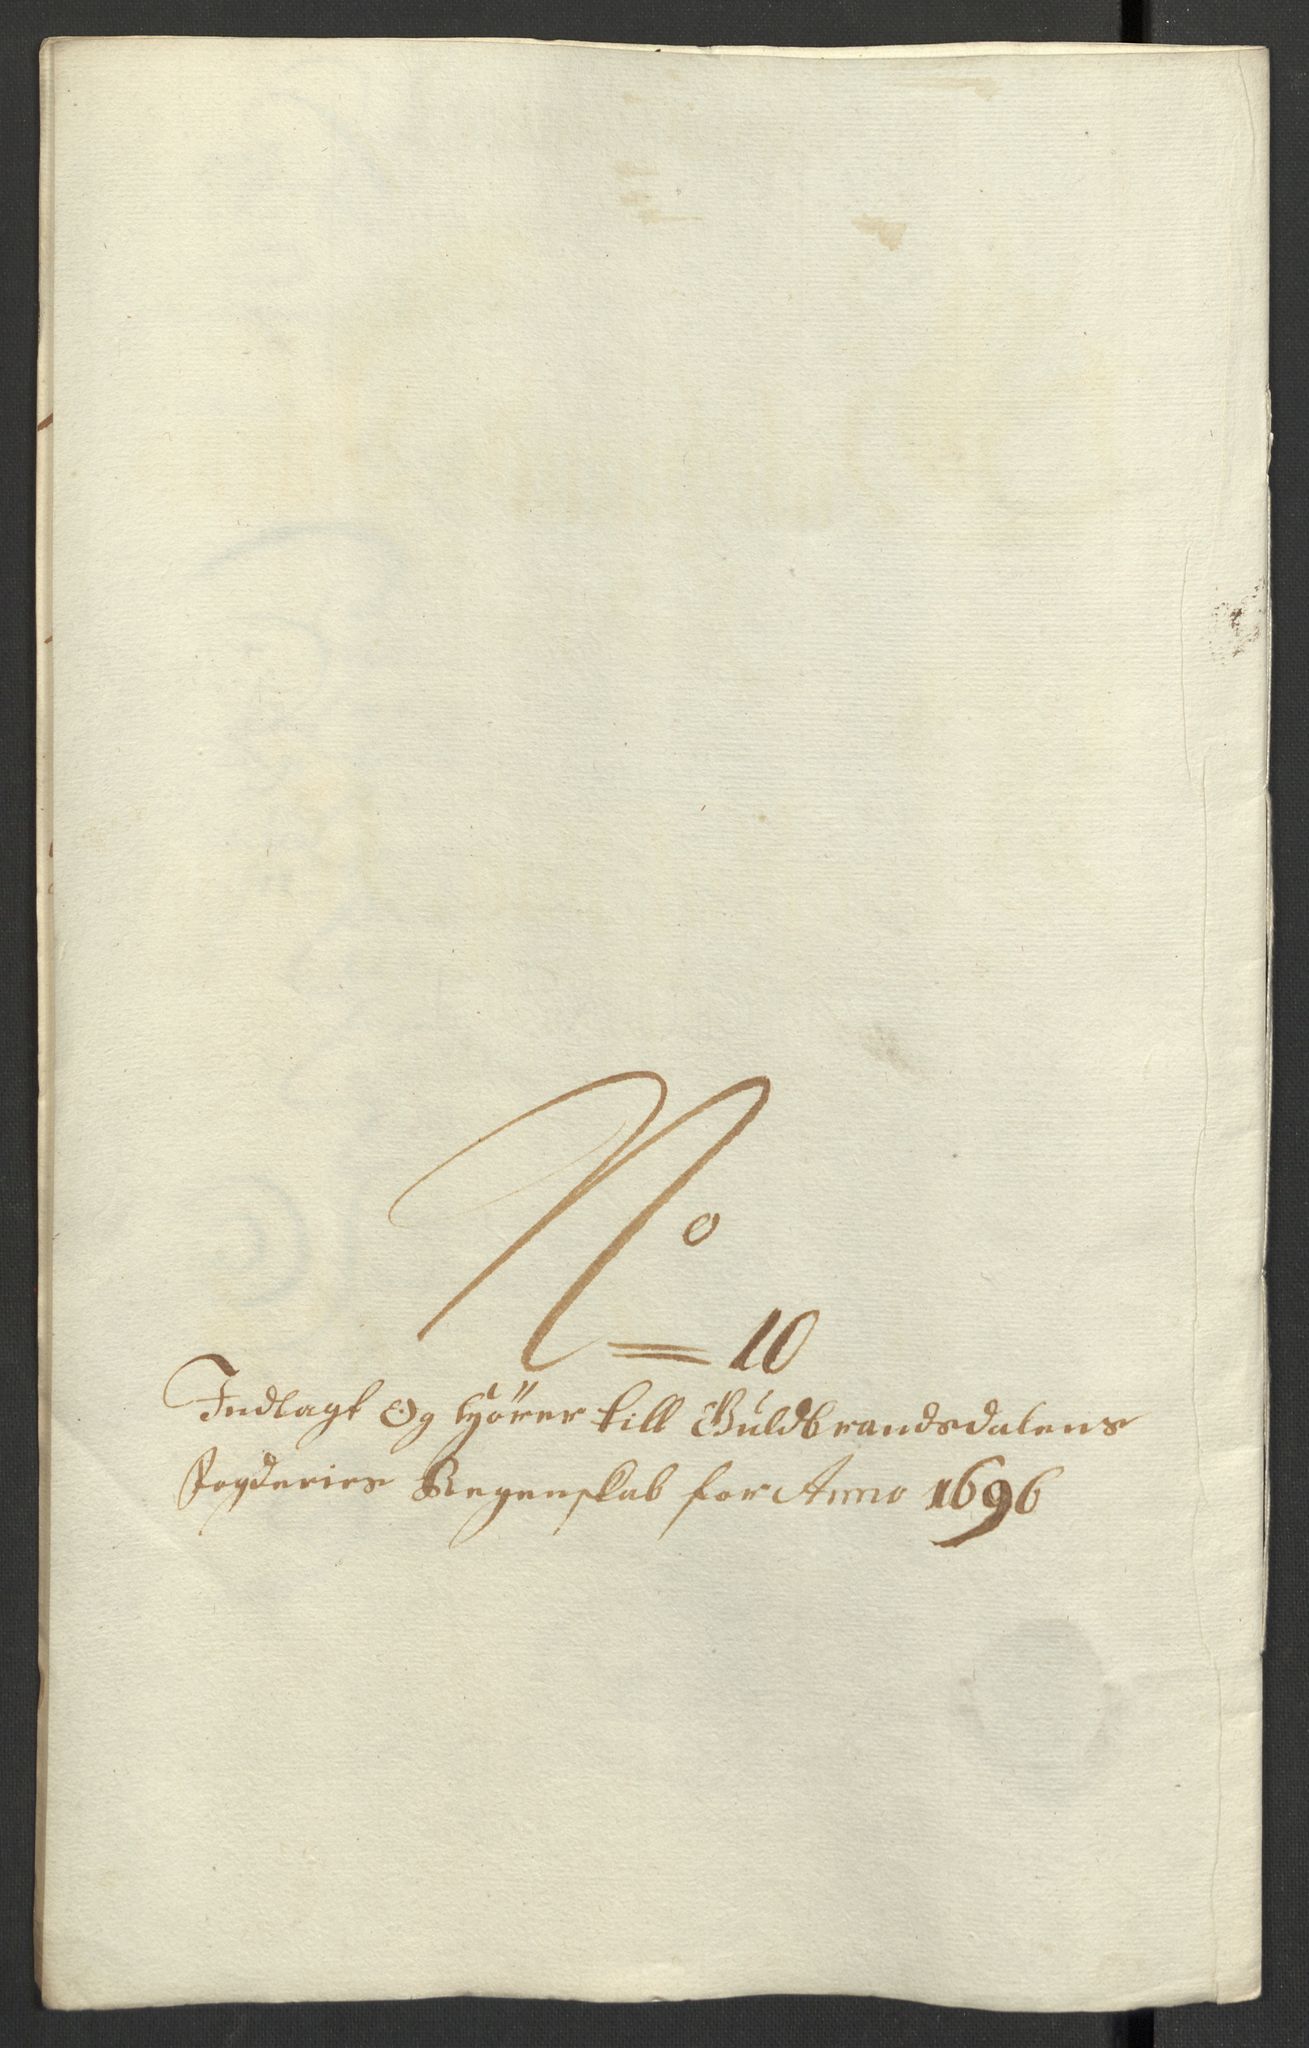 No 10
Indlagt Og hörer till Guldbrandsdalens
fogderies Regenskab for Anno 1696